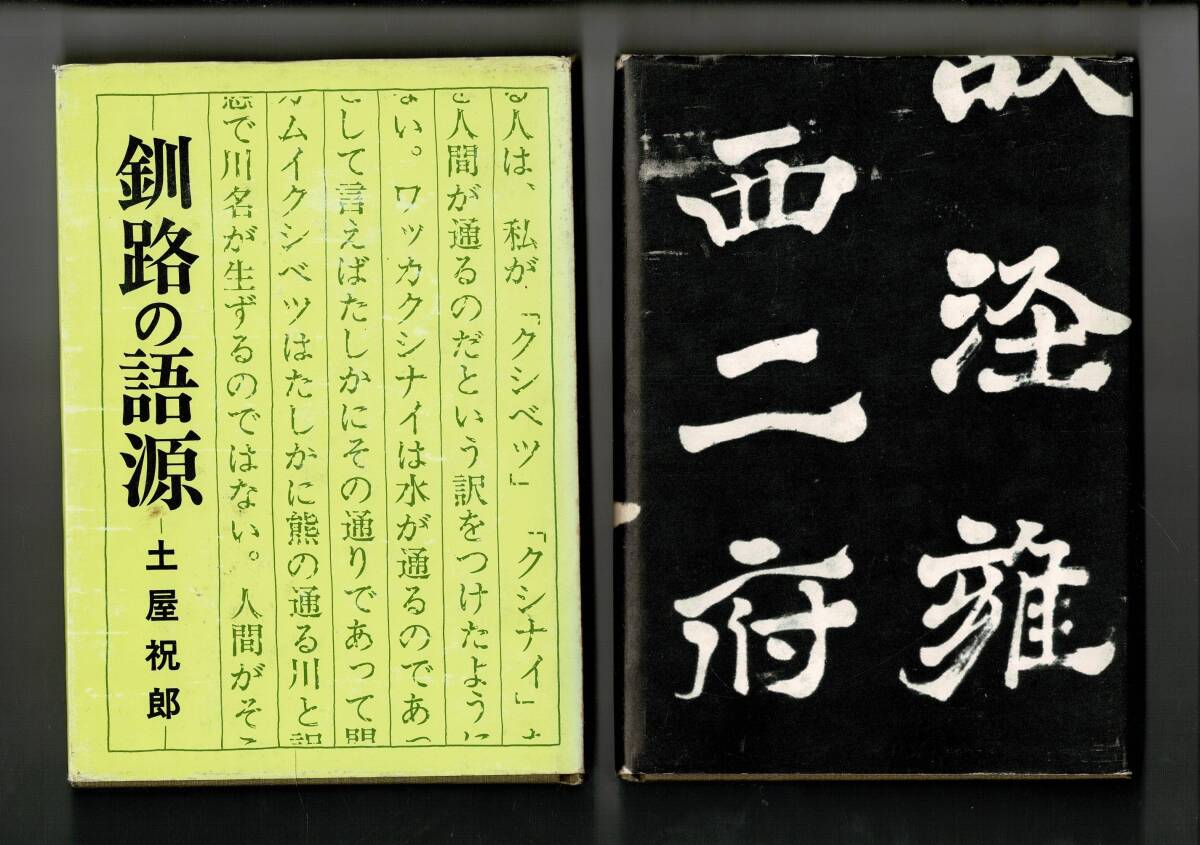 釧路の語源
土屋祝郎
る人は、私が「クシベツ」「クシナイ」
と人間が通るのだという訳をつけたように
ない。ワッカクシナイは水が通るのであっ
として言えばたしかにその通りであって
カムイクシベツはたしかに熊の通る川と訳
で川名が生ずるのではない。人間がそこ
涇雍
西二府